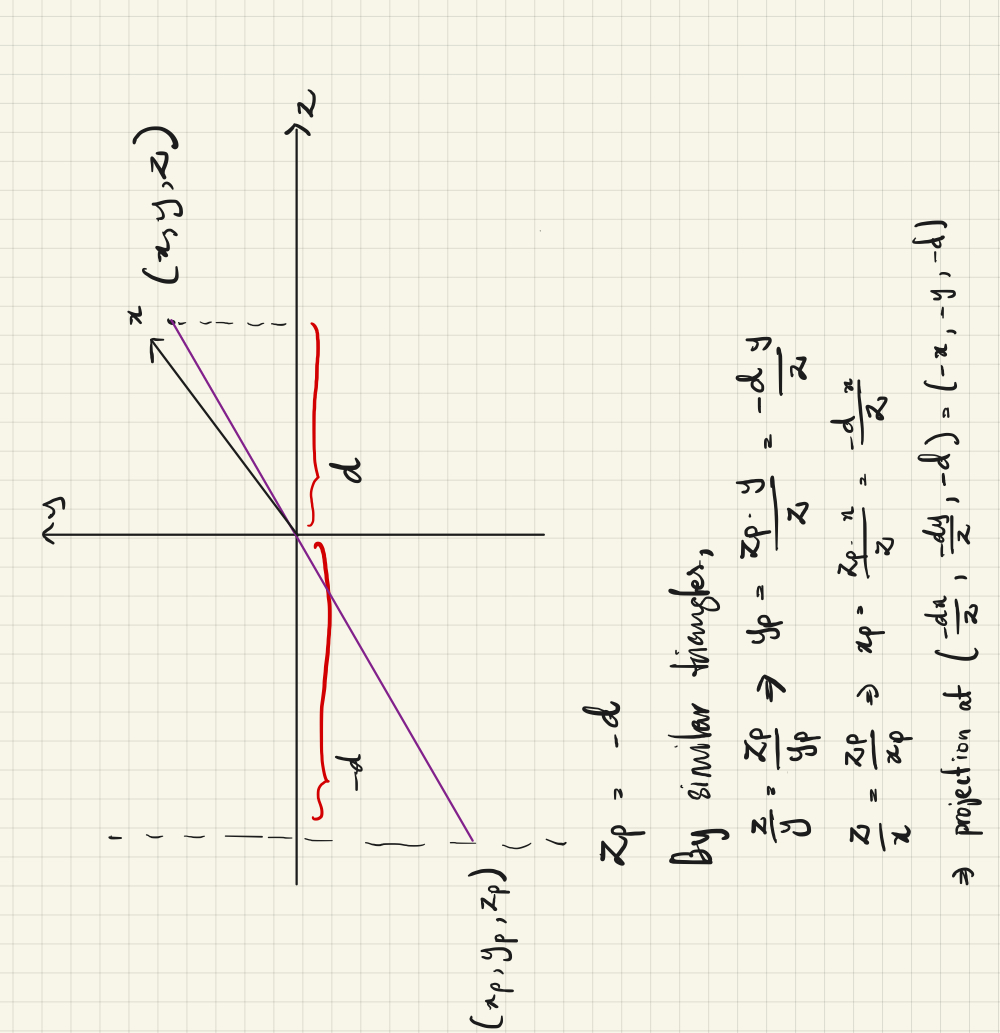 y
x
(x, y, z)
z
-d
d
(x_p, y_p, z_p)
z_p = -d
By similar triangles,
z/y = z_p/y_p ⇒ y_p = z_p · y / z = -d y / z
z/x = z_p/x_p ⇒ x_p = z_p · x / z = -d x / z
⇒ projection at (-dx/z, -dy/z, -d) = (-x, -y, -d)